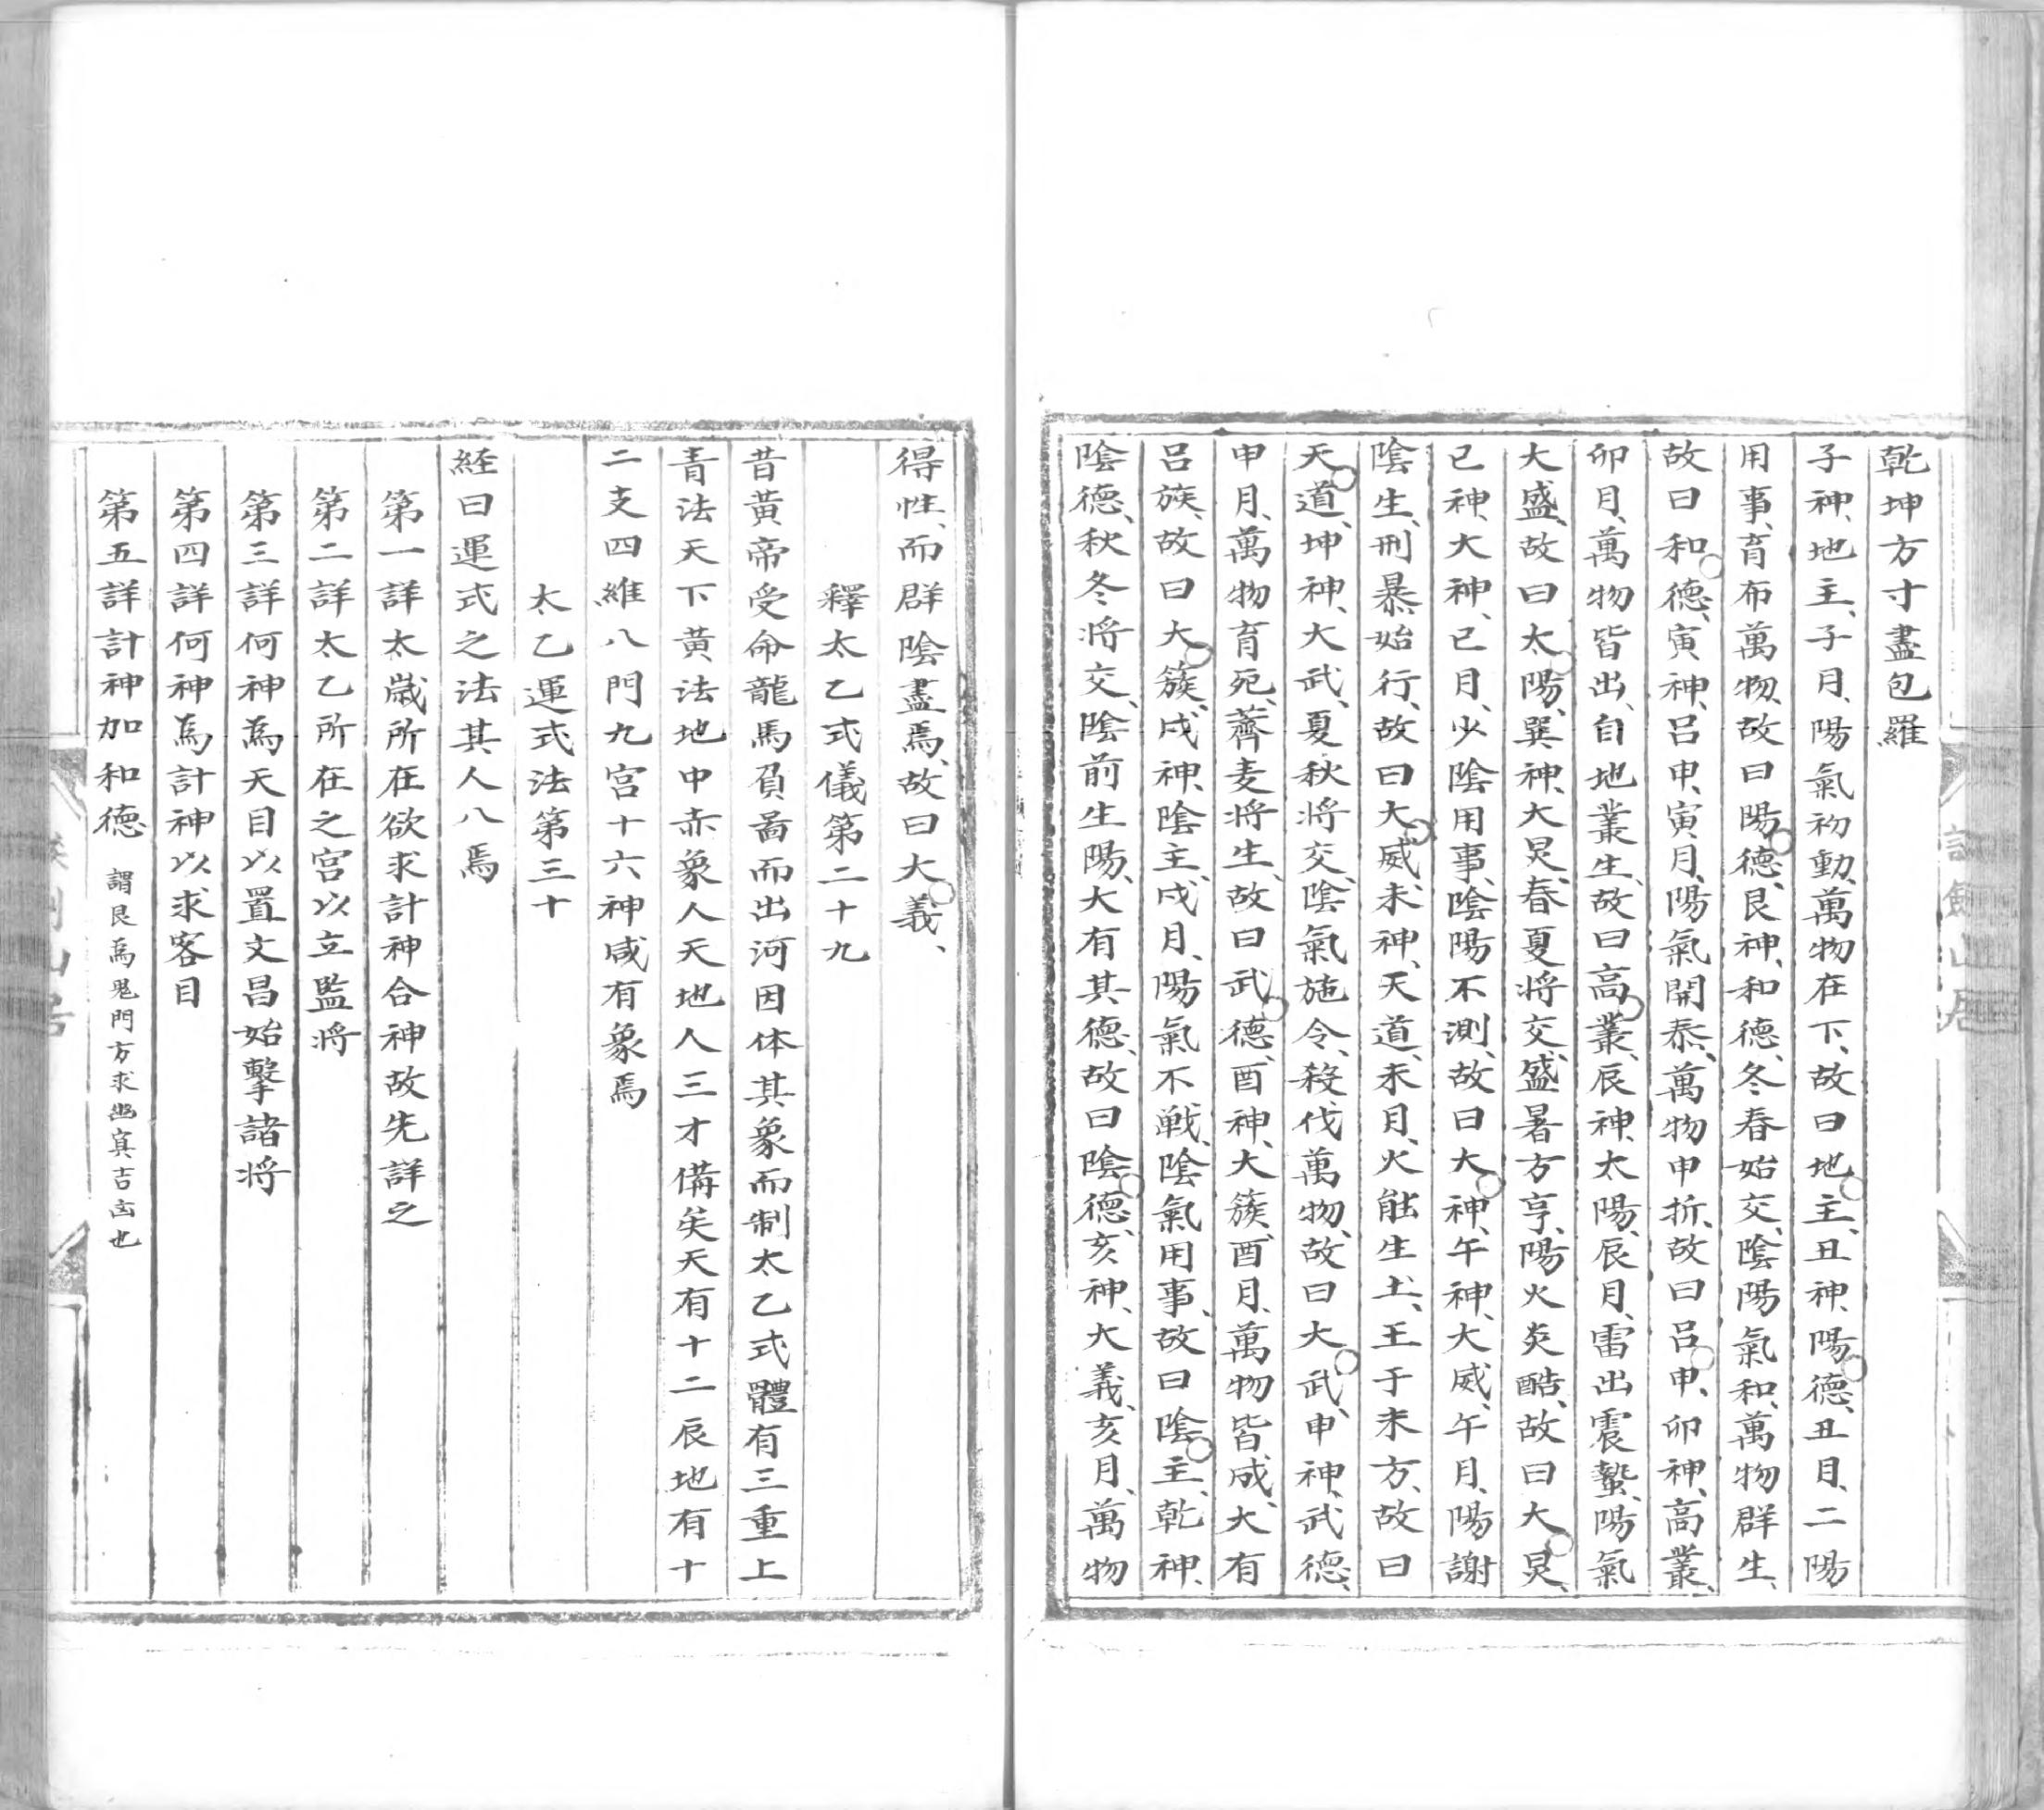 乾坤方寸盡包羅
子神、地主、子月、陽氣初動、萬物在下、故曰地主、丑神、陽德、丑月、二陽
用事、育布萬物、故曰陽德、艮神、和德、冬春始交、陰陽氣和、萬物群生、
故曰和德、寅神、呂申、寅月、陽氣開泰、萬物申折、故曰呂申、卯神、高叢、
卯月、萬物皆出、自地叢生、故曰高叢、辰神、太陽、辰月、雷出震蟄、陽氣
大盛、故曰太陽、巽神、大炅、春夏將交、盛暑方亨、陽火炎酷、故曰大炅、
巳神、大神、巳月、少陰用事、陰陽不測、故曰大神、午神、大威、午月、陽謝
陰生、刑暴始行、故曰大威、未神、天道、未月、火能生土、王于未方、故曰
天道、坤神、大武、夏秋將交、陰氣施令、殺伐萬物、故曰大武、申神、武德、
申月、萬物育死、薺麦將生、故曰武德、酉神、大簇、酉月、萬物皆成、大有
呂族、故曰大簇、戌神、陰主、戌月、陽氣不戦、陰氣用事、故曰陰主、乾神、
陰德、秋冬將交、陰前生陽、大有其德、故曰陰德、亥神、大義、亥月、萬物
得性、而群陰盡焉、故曰大義、
釋太乙式儀第二十九
昔黃帝受命龍馬負啚而出河因体其象而制太乙式體有三重上
青法天下黃法地中赤象人天地人三才備矣天有十二辰地有十
二支四維八門九宫十六神咸有象焉
太乙運式法第三十
経曰運式之法其人八焉
第一詳太歳所在欲求計神合神故先詳之
第二詳太乙所在之宫以立監將
第三詳何神為天目以置文昌始擊諸將
第四詳何神爲計神以求客目
第五詳計神加和德 謂艮為鬼門方求幽冥吉凶也